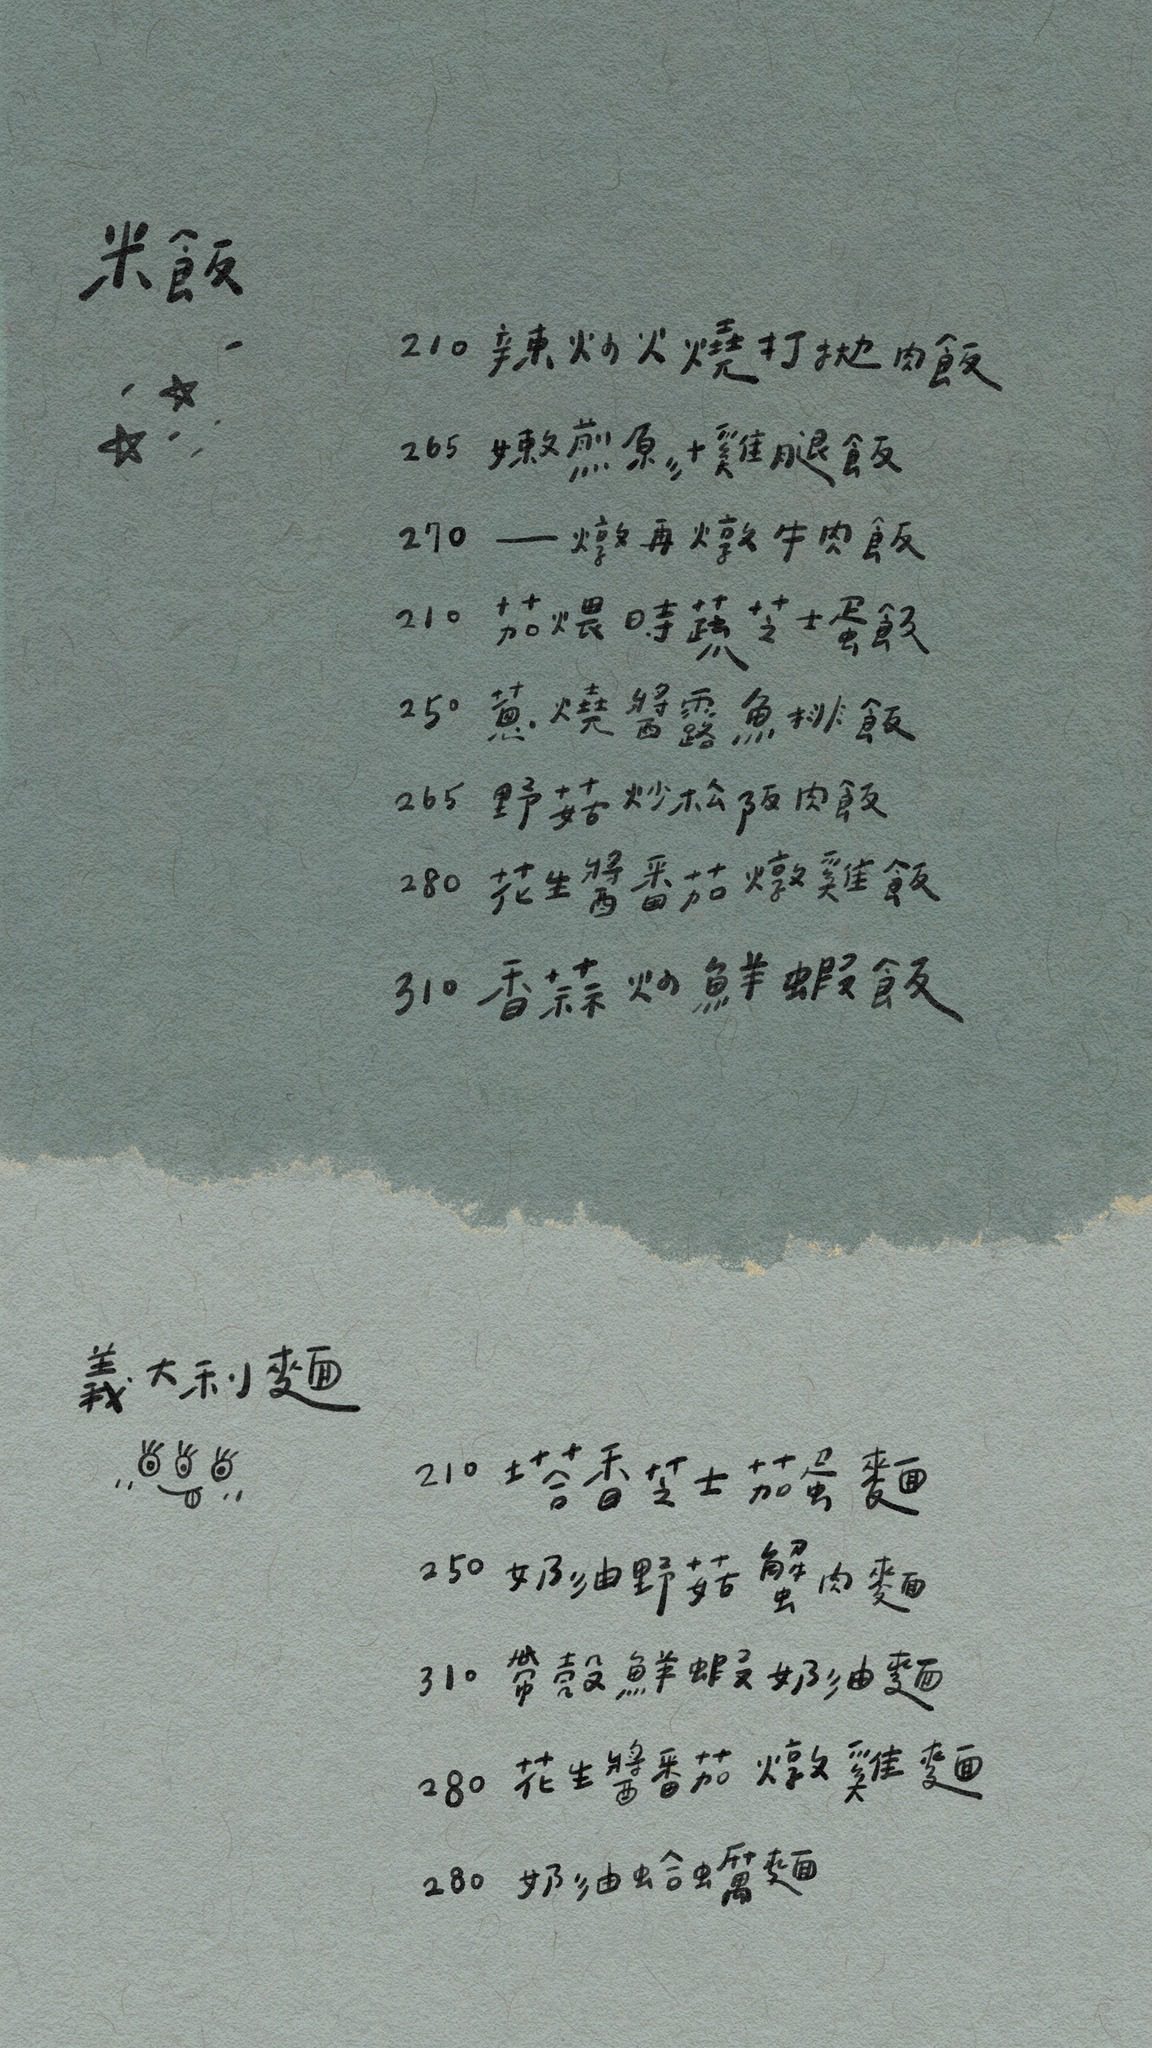 米飯
210 辣炒火燒打拋肉飯
265 嫩煎原汁雞腿飯
270 一燉再燉牛肉飯
210 茄煨時蔬芝士蛋飯
250 蔥燒醬露魚排飯
265 野菇炒松阪肉飯
280 花生醬番茄燉雞飯
310 香蒜炒鮮蝦飯
義大利麵
210 塔香芝士茄蛋麵
250 奶油野菇蟹肉麵
310 帶殼鮮蝦奶油麵
280 花生醬番茄燉雞麵
280 奶油蛤蠣麵